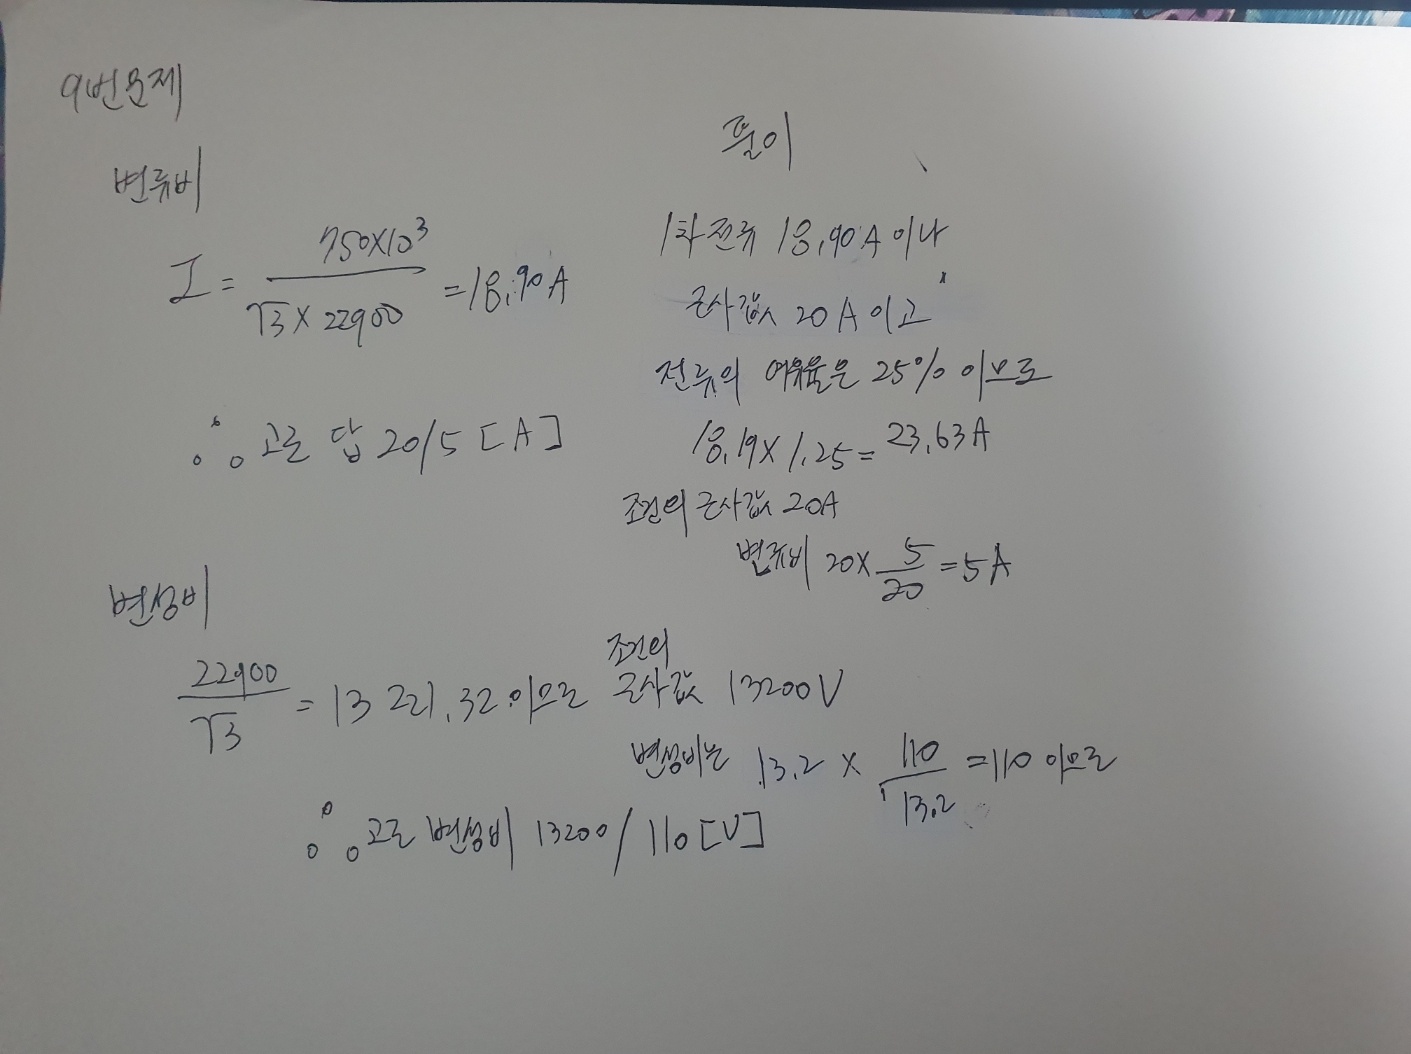 9번문제
변류비
I = 750×10³ / √3 × 22900 = 18.90 A
∴ 고로 답 20/5 [A]
풀이
1차전류 18.90A 이나
근사값 20A 이고
전류의 여유율은 25% 이므로
18.19 × 1.25 = 23.63A
조건의 근사값 20A
변류비 20 × 5/20 = 5A
변성비
22900 / √3 = 13221.32 이므로 조건의 근사값 13200V
변성비는 13.2 × 110/13.2 = 110 이므로
∴ 고로 변성비 13200/110 [V]